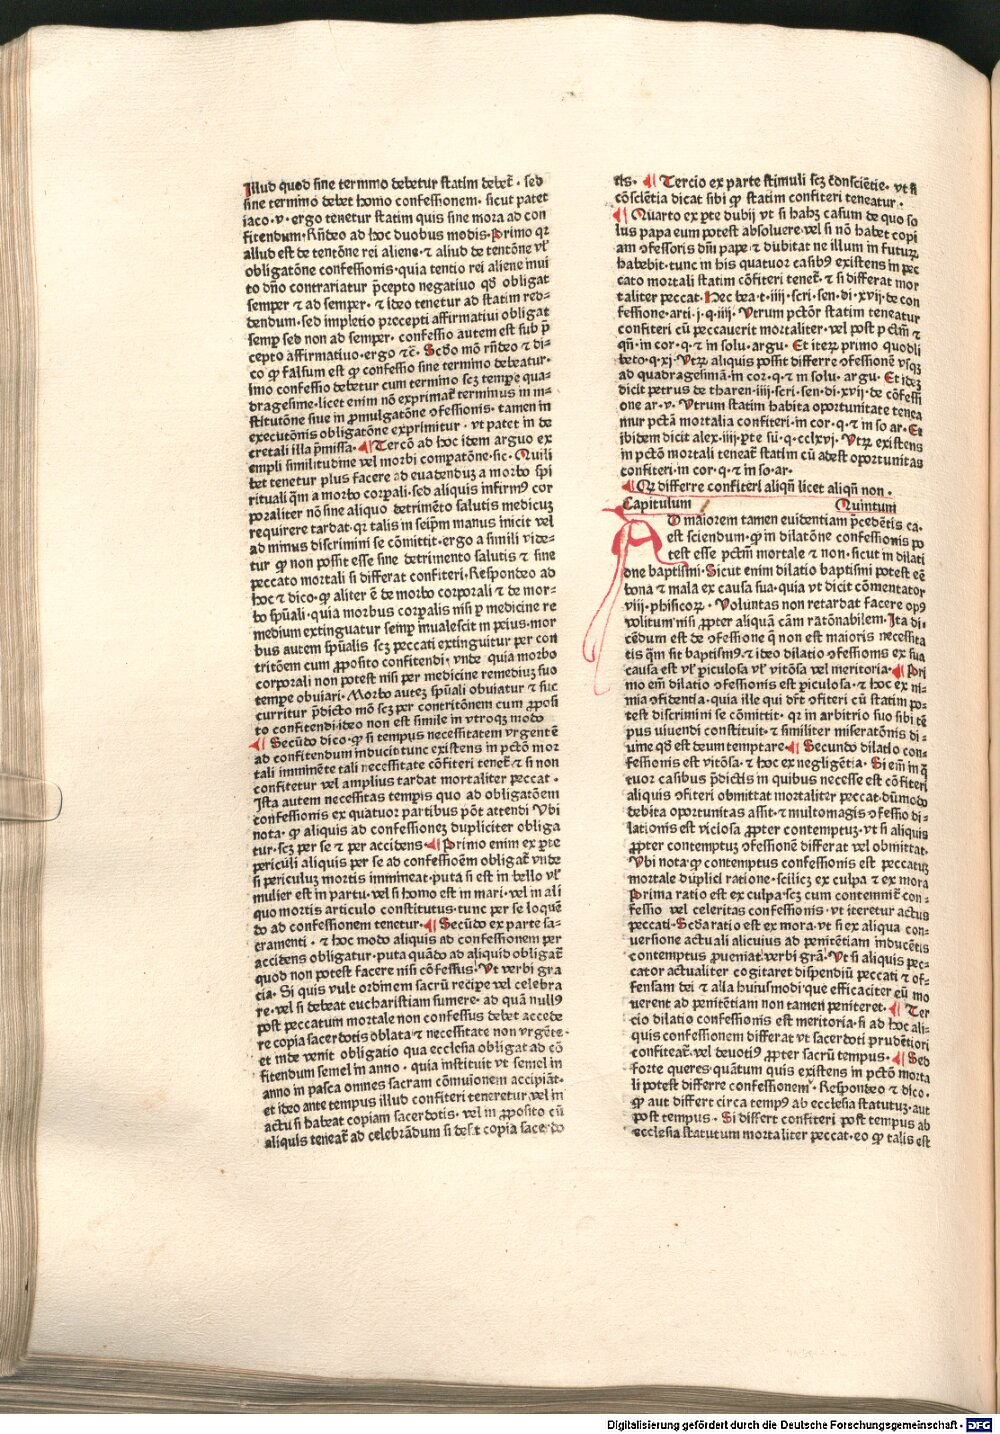 Illud quod sine termino debetur statim debet̃ · sed
sine termino debet homo confessionem · sicut patet
iaco · v · ergo tenetur statim quis sine mora ad con
fitendum · Rñdeo ad hoc duobus modis · Primo qꝛ
aliud est de tentōne rei aliene · ⁊ aliud de tentōne vl̓
obligatōne confessionis · quia tentio rei aliene inui
to dño contrariatur p̄cepto negatiuo qd̓ obligat
semper ⁊ ad semper · ⁊ ideo tenetur ad statim red-
dendum · sed impletio precepti affirmatiui obligat
semꝑ sed non ad semper · confessio autem est sub p̄
cepto affirmatiuo · ergo ⁊c̃ · Scd̓o mō rñdeo ⁊ di-
co ꝙ falsum est ꝙ confessio sine termino debeatur ·
imo confessio debetur cum termino scꝫ tempꝛe qua-
dragesime · licet enim nō exprimat̃ terminus in in-
stitutōne siue in ꝓmulgatōne ꝯfessionis · tamen in
executōnis obligatōne exprimitur · vt patet in de
cretali illa p̄missa · ¶ Tercō ad hoc idem arguo ex
empli similitudine vel morbi compatōne · sic · Quili
bet tenetur plus facere ad euadenduꝫ a morbo spi
rituali q̄m a morbo corꝑali · sed aliquis infirmꝰ cor
poraliter nō sine aliquo detrimēto salutis medicuꝫ
requirere tardat · qꝛ talis in seip̄m manus inicit vel
ad minus discrimini se cōmittit · ergo a simili vide-
tur ꝙ non possit esse sine detrimento salutis ⁊ sine
peccato mortali si differat confiteri · Respondeo ad
hoc ⁊ dico · ꝙ aliter ē de morbo corꝑali ⁊ de mor-
bo sp̄uali · quia morbus corꝑalis nisi ꝑ medicine re
medium extinguatur semꝑ inualescit in peius · mor
bus autem sp̄ualis scꝫ peccati extinguitur per con
tritōem cum ꝓposito confitendi · vnde quia morbo
corporali non potest nisi per medicine remediuꝫ suo
tempꝛe obuiari · Morbo auteꝫ sp̄uali obuiatur ⁊ suc
curritur p̄dicto mō scꝫ per contritōnem cum ꝓposi
to confitendi · ideo non est simile in vtroqꝫ modo
¶ Secūdo dico · ꝙ si tempus necessitatem vrgentē
ad confitendum inducit tunc existens in pctō mor
tali imminēte tali necessitate cōfiteri tenet̃ · ⁊ si non
confitetur vel amplius tardat mortaliter peccat ·
Ista autem necessitas tempꝛis quo ad obligatōem
confessionis ex quatuor partibus pōt attendi Vbi
nota · ꝙ aliquis ad confessioneꝫ dupliciter obliga
tur · scꝫ per se ⁊ per accidens · ¶ Primo enim ex ꝑte
periculi aliquis per se ad confessioēm obligat̃ vnde
si periculuꝫ mortis immineat · puta si est in bello vl̓
mulier est in partu · vel si homo est in mari · vel in ali
quo mortis articulo constitutus · tunc per se loquē
do ad confessionem tenetur · ¶ Secūdo ex parte sa-
cramenti · ⁊ hoc modo aliquis ad confessionem per
accidens obligatur · puta quādo ad aliquid obligat̃
quod non potest facere nisi cōfessus · Vt verbi gra
cia · Si quis vult ordinem sacrū recipe vel celebra
re · vel si debeat eucharistiam sumere · ad quā nullꝰ
post peccatum mortale non confessus debet accede
re copia sacerdotis oblata ⁊ necessitate non vrgēte ·
et inde venit obligatio qua ecclesia obligat ad cō
fitendum semel in anno · quia instituit vt semel in
anno in pasca omnes sacram cōmuionem accipiāt ·
et ideo ante tempus illud confiteri teneretur vel in
actu si habeat copiam sacerdotis · vel in ꝓposito cū
aliquis teneat̃ ad celebrādum si desit copia sacerdo
tis · ¶ Tercio ex parte stimuli scꝫ ꝯnsciētie · vt si
cōsciētia dicat sibi ꝙ statim confiteri teneatur ·
¶ Quarto ex ꝑte dubij vt si habꝫ casum de quo so
lus papa eum potest absoluere · vel si nō habet copi
am ꝯfessoris dm̄ pape · ⁊ dubitat ne illum in futuꝝ
habebit · tunc in his quatuor casibꝰ existens in pec
cato mortali statim cōfiteri tenet̃ · ⁊ si differat mor
taliter peccat · Hec bea · t · iiij · scri · sen · di · xvij · de con
fessione · arti · j · q · iiij · Vtrum pctōr statim teneatur
confiteri cū peccauerit mortaliter · vel post pctm̄ ⁊
qñ · in cor · q · ⁊ in solu · argu · Et iteꝝ primo quodli
beto · q · xj · Vtꝝ aliquis possit differre ꝯfessionē vsqꝫ
ad quadragesimā · in cor · q · ⁊ in solu · argu · Et ideꝫ
dicit petrus de tharen · iiij · scri · sen · di · xvij · de cōfessi
one ar · v · Vtrum statim habita oportunitate tenea
mur pctā mortalia confiteri · in cor · q · ⁊ in so ar · Et
ibidem dicit alex · iiij · pte sū · q · cclxvj · Vtꝝ existens
in pctō mortali teneat̃ statim cū adest oportunitas
confiteri · in cor · q · ⁊ in so · ar ·
¶ Qꝛ differre confiteri aliqñ licet aliqñ non ·
Capitulum Quintum
AD maiorem tamen euidentiam p̄cedētis ca ·
est sciendum · ꝙ in dilatōne confessionis po
test esse pctm̄ mortale ⁊ non · sicut in dilati
one baptismi · Sicut enim dilatio baptismi potest eē
bona ⁊ mala ex causa sua · quia vt dicit cōmentator
viij · phisicoꝝ · Voluntas non retardat facere opꝰ
volitum nisi ꝓpter aliquā cām ratōnabilem · Ita di
cēdum est de ꝯfessione q̄ non est maioris necessita
tis q̄m sit baptismꝰ · ⁊ ideo dilatio ꝯfessionis ex sua
causa est vl̓ ꝑiculosa vl̓ vitōsa vel meritoria · ¶ Pri
mo em̄ dilatio ꝯfessionis est ꝑiculosa · ⁊ hoc ex ni-
mia ꝯfidentia · quia ille qui drt̄ ꝯfiteri cū statim po-
test discrimini se cōmittit · qꝛ in arbitrio suo sibi tē
pus viuendi constituit · ⁊ similiter miseratōnis di-
uine qd̓ est deum temptare · ¶ Secundo dilatio con-
fessionis est vitōsa · ⁊ hoc ex negligētia · Si em̄ in q̄
tuor casibus p̄dictis in quibus necesse est cōfiteri
aliquis ꝯfiteri obmittat mortaliter peccat · dūmodo
debita oportunitas assit · ⁊ multomagis ꝯfessio di-
lationis est viciosa ꝓpter contemptuꝫ · vt si aliquis
ꝓpter contemptuꝫ ꝯfessionē differat vel obmittat ·
Vbi nota · ꝙ contemptus confessionis est peccatuꝫ
mortale duplici ratione · scilicꝫ ex culpa ⁊ ex mora
Prima ratio est ex culpa · scꝫ cum contemnit̃ con-
fessio vel celeritas confessionis · vt iteretur actus
peccati · Scd̓a ratio est ex mora · vt si ex aliqua con-
uersione actuali alicuius ad penitētiam inducētis
contemptus ꝓueniat verbi grā · Vt si aliquis pec-
cator actualiter cogitaret dispendiū peccati ⁊ of-
fensam dei ⁊ alia huiusmodi · que efficaciter eū mo
uerent ad penitētiam non tamen peniteret · ¶ Ter
cio dilatio confessionis est meritoria · si ad hoc ali-
quis confessionem differat vt sacerdoti prudētiori
confiteat̃ · vel deuotiꝰ ꝓpter sacrū tempus · ¶ Sed
forte queres · quātum quis existens in pctō morta
li potest differre confessionem · Respondeo ⁊ dico ·
ꝙ aut differt circa tempꝰ ab ecclesia statutuꝫ · aut
post tempus · Si differt confiteri post tempus ab
ecclesia statutum mortaliter peccat · eo ꝙ talis est
Digitalisierung gefördert durch die Deutsche Forschungsgemeinschaft - DFG